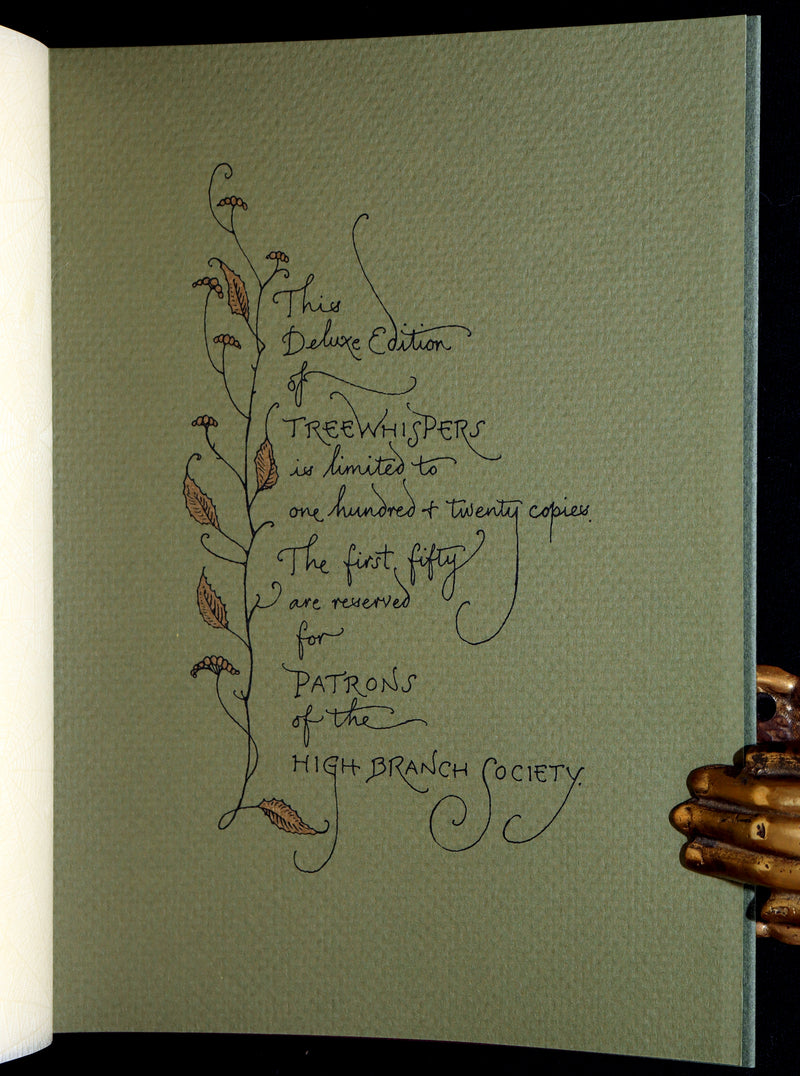 This
Deluxe Edition
of
TREEWHISPERS
is limited to
one hundred & twenty copies.
The first fifty
are reserved
for
PATRONS
of the
HIGH BRANCH SOCIETY.